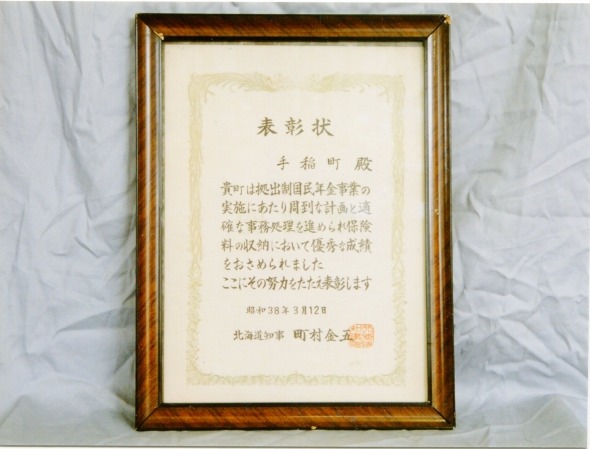 表彰状
手稲町 殿
貴町は拠出制国民年金事業の
実施にあたり周到な計画と適
確な事務処理を進められ保険
料の収納において優秀な成績
をおさめられました
ここにその努力をたたえ表彰します
昭和38年3月12日
北海道知事 町村金五